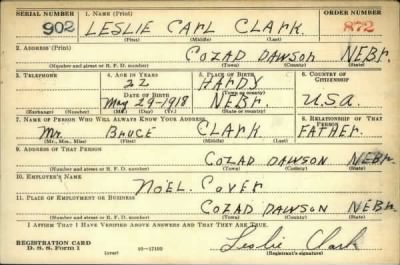 SERIAL NUMBER 1. NAME (Print) ORDER NUMBER
902 LESLIE CARL CLARK. 872
(First) (Middle) (Last)
2. ADDRESS (Print)
COZAD DAWSON NEBr.
(Number and street or R. F. D. number) (Town) (County) (State)
3. TELEPHONE 4. AGE IN YEARS 5. PLACE OF BIRTH 6. COUNTRY OF CITIZENSHIP
22 HARDY
DATE OF BIRTH (Town or county)
May 29-1918 NEBr. U.S.A.
(Exchange) (Number) (Mo.) (Day) (Yr.) (State or country)
7. NAME OF PERSON WHO WILL ALWAYS KNOW YOUR ADDRESS 8. RELATIONSHIP OF THAT PERSON
Mr. BRUCE CLARK FATHER.
(Mr., Mrs., Miss) (First) (Middle) (Last)
9. ADDRESS OF THAT PERSON
COZAD DAWSON NEBr.
(Number and street or R. F. D. number) (Town) (County) (State)
10. EMPLOYER'S NAME
NOEL. COVER
11. PLACE OF EMPLOYMENT OR BUSINESS
COZAD DAWSON NEBr.
(Number and street or R. F. D. number) (Town) (County) (State)
I AFFIRM THAT I HAVE VERIFIED ABOVE ANSWERS AND THAT THEY ARE TRUE.
REGISTRATION CARD
D. S. S. Form 1 (over) 16-17105 Leslie Clark
(Registrant's signature)